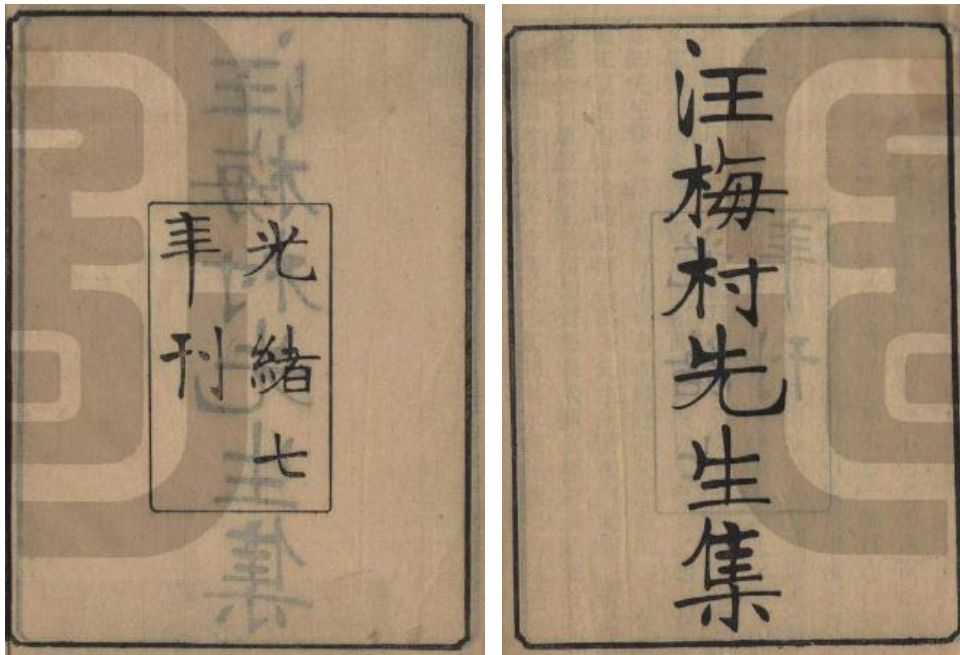 汪梅村先生集
光緒七
年刊